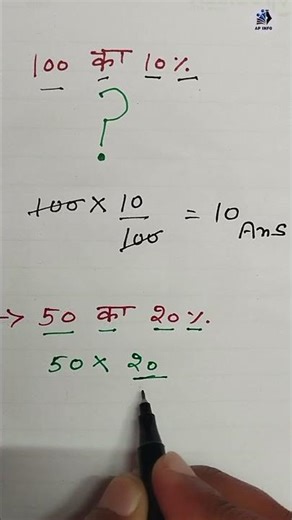 AP INFO
100 का 10%.
?
100 × 10/100 = 10 Ans
→ 50 का 20%.
50 × 20